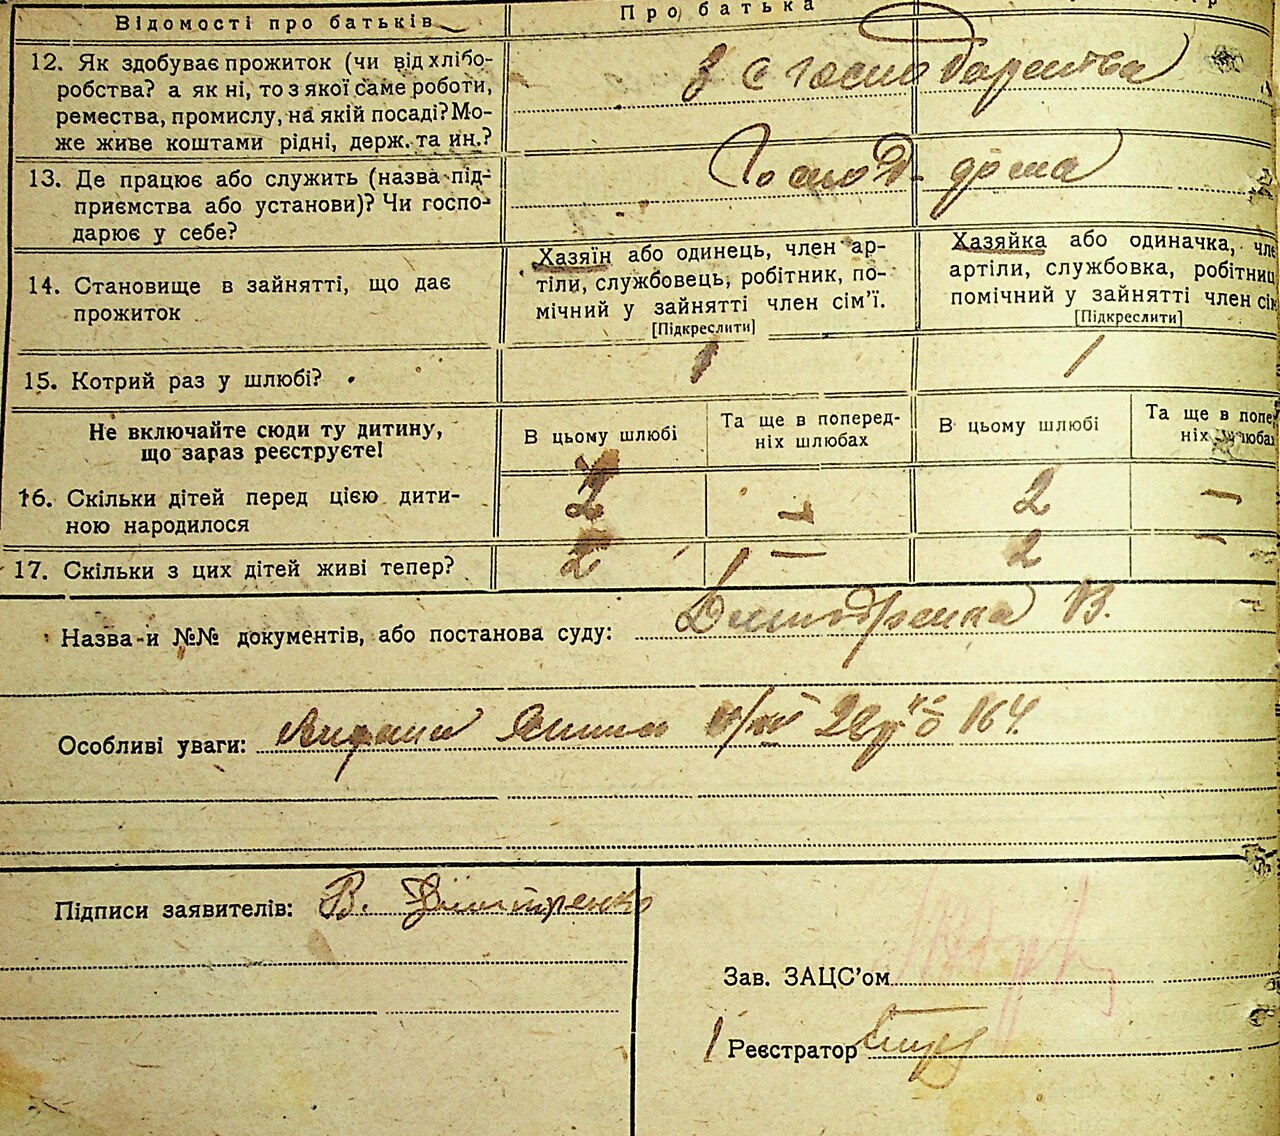 Відомості про батьків
Про батька
12. Як здобуває прожиток (чи від хлібо-
робства? а як ні, то з якої саме роботи,
ремества, промислу, на якій посаді? Мо-
же живе коштами рідні, держ. та ин.?
з с господарства
13. Де працює або служить (назва під-
приємства або установи)? Чи госпо-
дарює у себе?
Господ. дома
14. Становище в зайнятті, що дає
прожиток
Хазяїн або одинець, член ар-
тіли, службовець, робітник, по-
мічний у зайнятті член сім'ї.
[Підкреслити]
Хазяйка або одиначка, чле
артіли, службовка, робітниц
помічний у зайнятті член сім
[Підкреслити]
15. Котрий раз у шлюбі?
1
1
Не включайте сюди ту дитину,
що зараз реєструєте!
В цьому шлюбі
Та ще в поперед-
ніх шлюбах
В цьому шлюбі
Та ще в попер
ніх шлюбах
16. Скільки дітей перед цією дити-
ною народилося
2
—
2
—
17. Скільки з цих дітей живі тепер?
2
—
2
—
Назва и №№ документів, або постанова суду:
В.
Особливі уваги:
164.
Підписи заявителів: В. Дімітренко
Зав. ЗАЦС'ом
Реєстратор